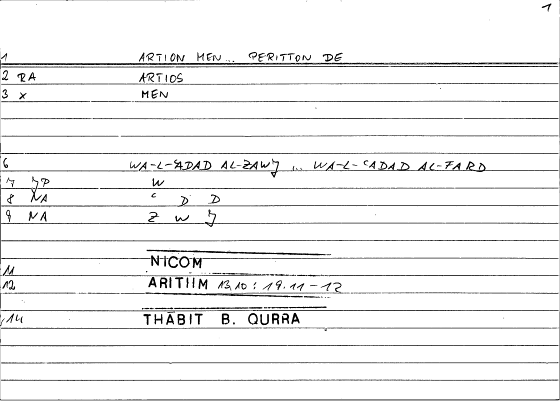 1
1 ARTION MEN... PERITTON DE
2 RA ARTIOS
3 x MEN
6 WA-L-ʿADAD AL-ZAWǦ ... WA-L-ʿADAD AL-FARD
7 ǦP W
8 NA ʿ D D
9 NA Z W Ǧ
11 NICOM
12 ARITIIM 13,10 : 19.11-12
14 THĀBIT B. QURRA